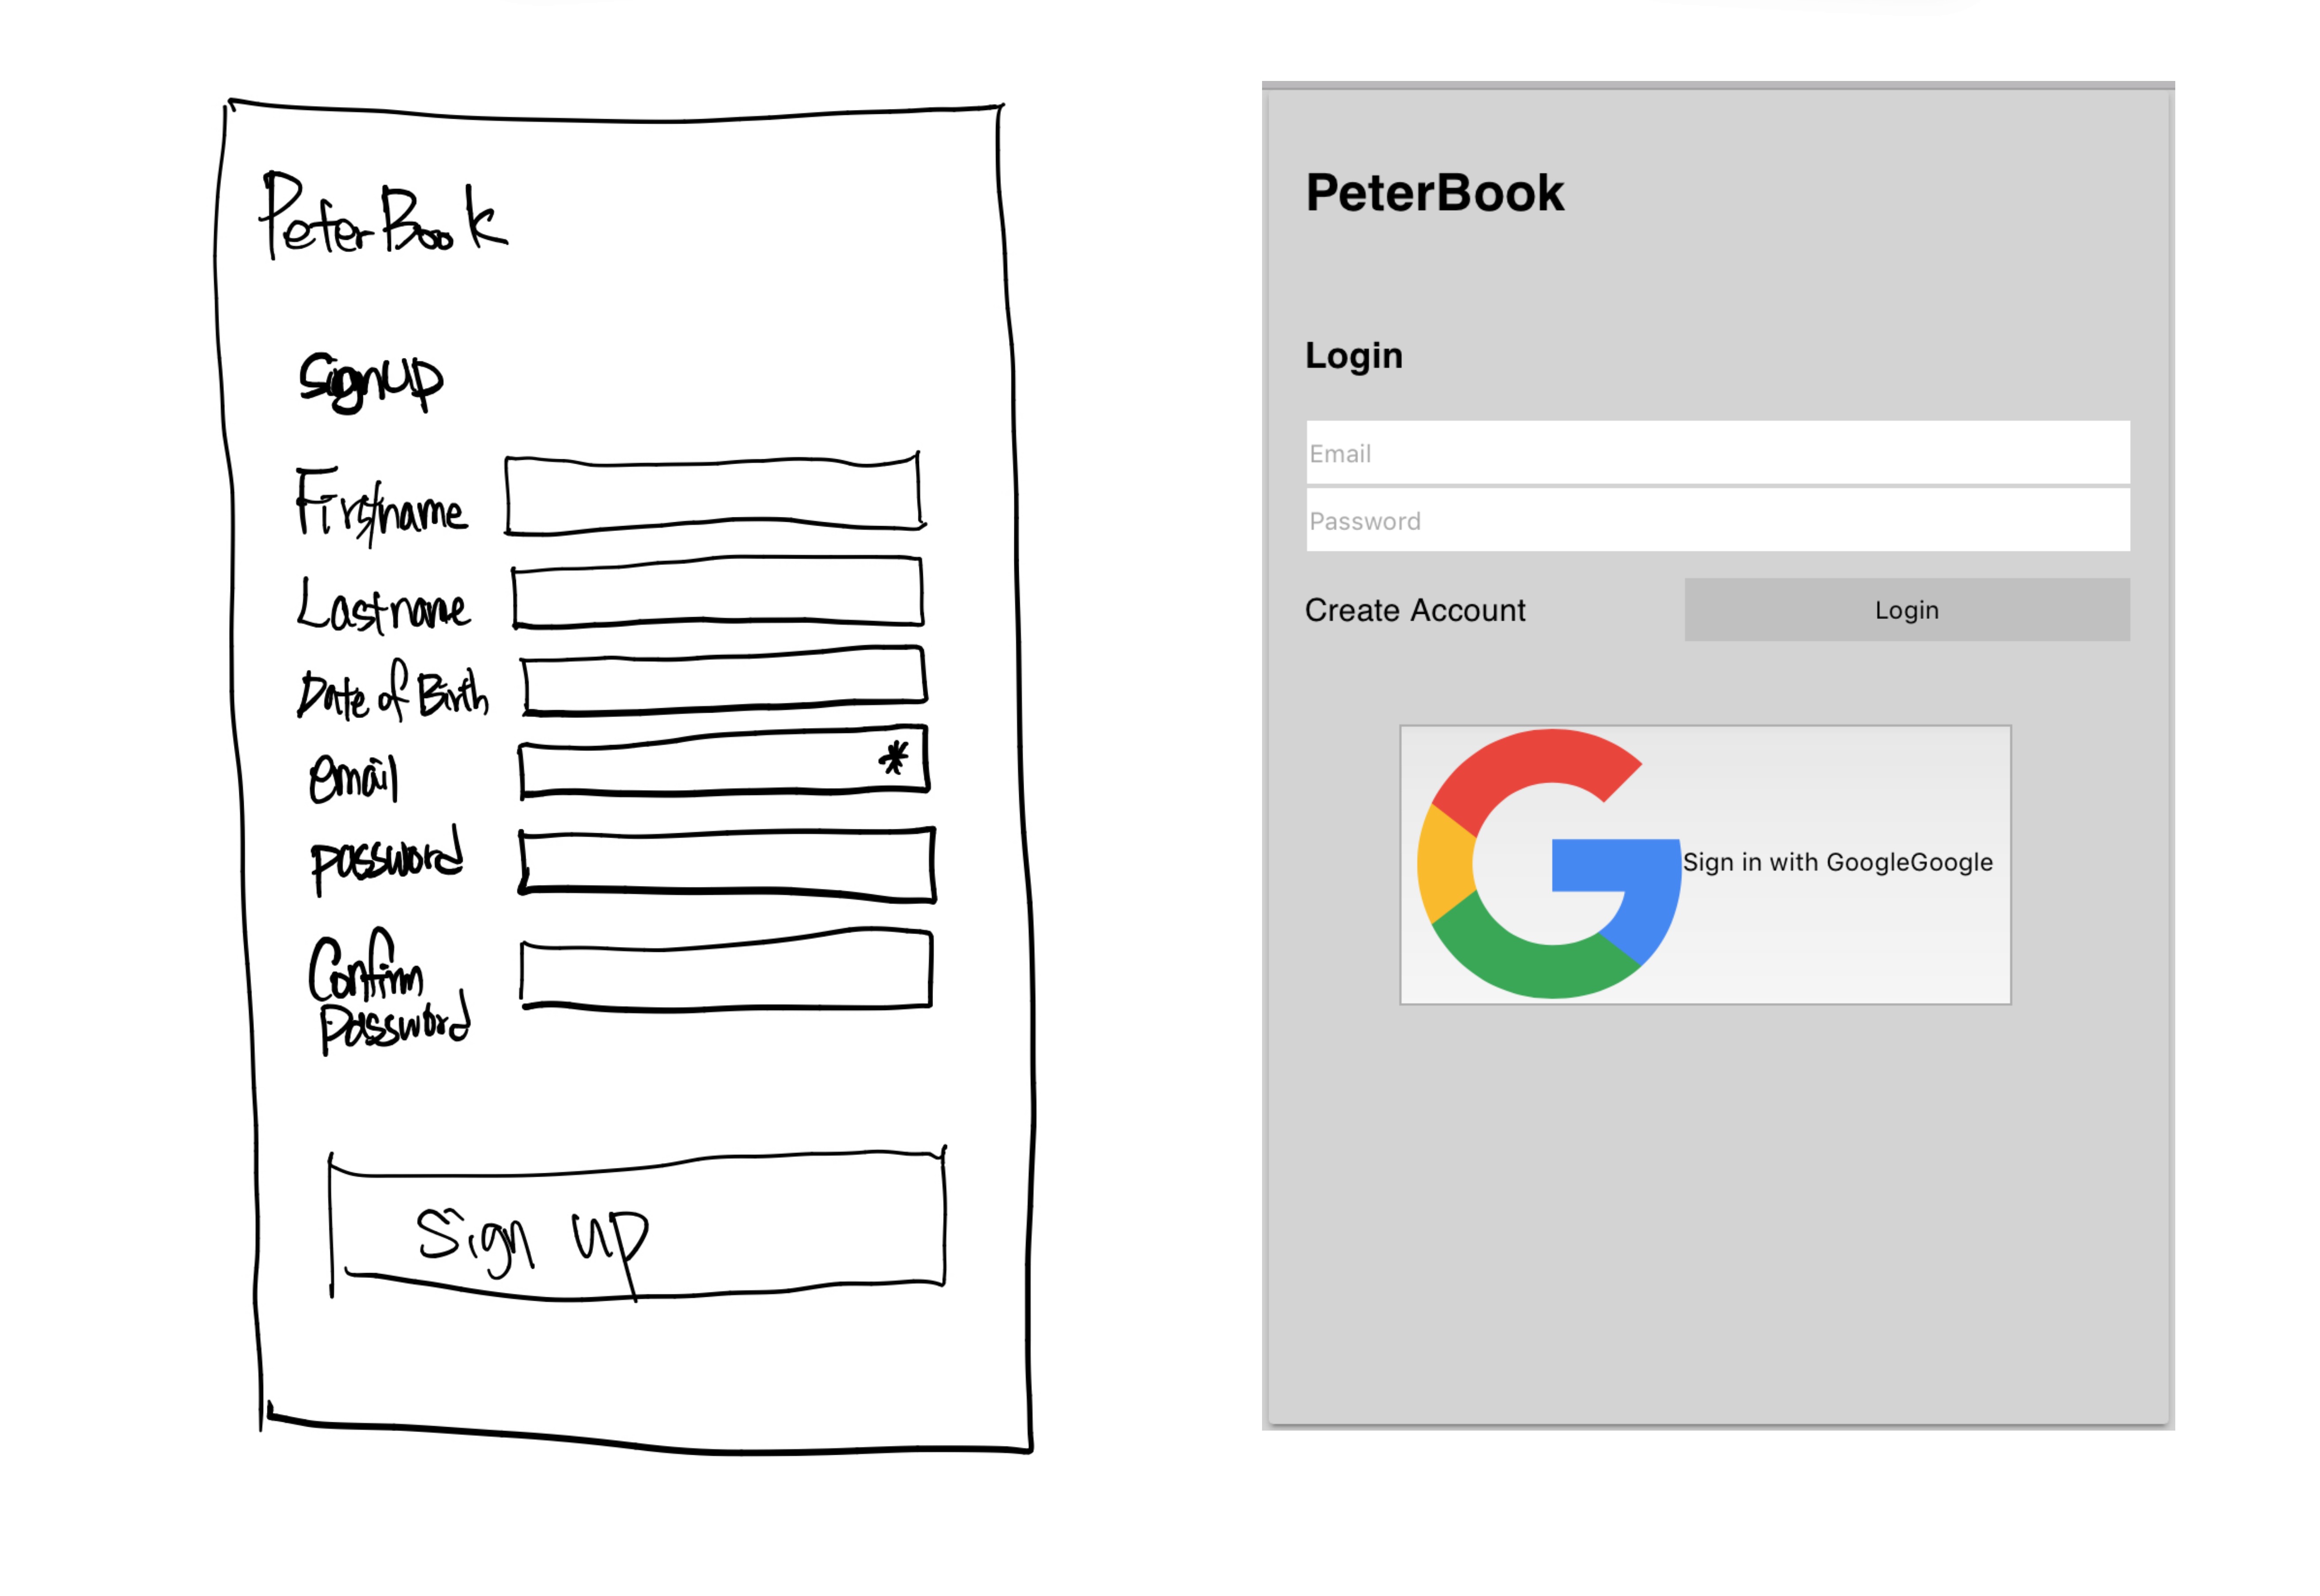 PeterBook
SignUp
Firstname
Lastname
Date of Birth
email *
password
Confirm
Password
Sign up
PeterBook
Login
Email
Password
Create Account Login
Sign in with GoogleGoogle